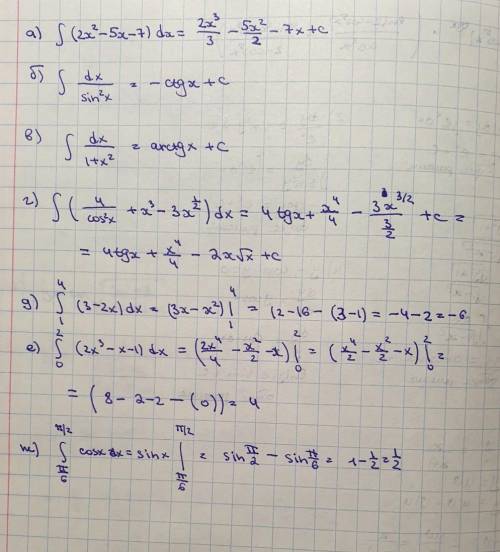 а) ∫ (2x² - 5x - 7) dx = 2x³/3 - 5x²/2 - 7x + c
б) ∫ dx/sin²x = - ctgx + c
в) ∫ dx/1+x² = arctgx + c
г) ∫ (4/cos²x + x³ - 3x^(1/2)) dx = 4tgx + x⁴/4 - 3x^(3/2)/(3/2) + c =
= 4tgx + x⁴/4 - 2x√x + c
д) ∫₁⁴ (3-2x) dx = (3x - x²)|₁⁴ = 12 - 16 - (3-1) = -4 - 2 = -6.
е) ∫₀² (2x³ - x - 1) dx = (2x⁴/4 - x²/2 - x)|₀² = (x⁴/2 - x²/2 - x)|₀² =
= (8 - 2 - 2 - (0)) = 4
ж) ∫_(π/6)^(π/2) cosx dx = sinx |_(π/6)^(π/2) = sin π/2 - sin π/6 = 1 - 1/2 = 1/2